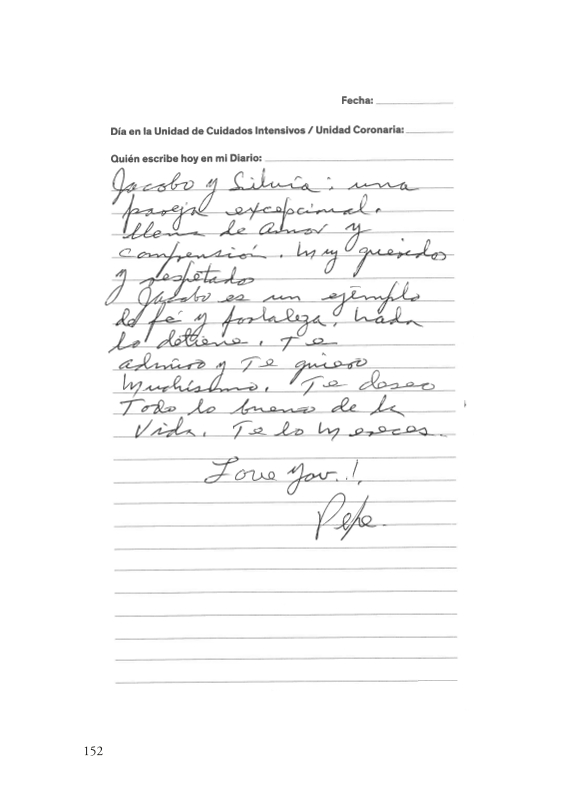 Fecha:
Día en la Unidad de Cuidados Intensivos / Unidad Coronaria:
Quién escribe hoy en mi Diario:
Jacobo y Silvia: una
pareja excepcional.
llena de amor y
comprensión. Muy queridos
y respetado
Jacobo es un ejemplo
de fé y fortaleza, nada
lo detiene. Te
admiro y Te quiero
Muchísimo. Te deseo
Todo lo bueno de la
Vida. Te lo Mereces.
Love You..!.
Pepe.
152